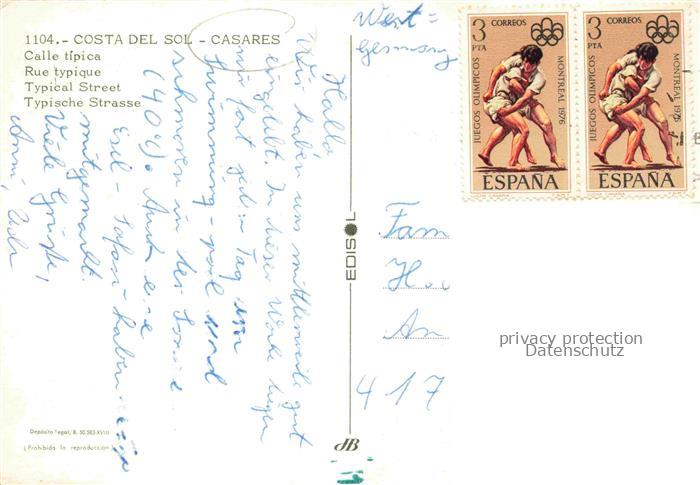 1104.- COSTA DEL SOL - CASARES
Calle típica
Rue typique
Typical Street
Typische Strasse
Hallo
Wir haben uns mittlerweile gut
eingelebt. In dieser Woche liegen
wir fast jeden Tag am
swimming-pool und
schmoren in der Sonne
(40°C). Auch eine
Esel-Safari haben wir
mitgemacht.
Viele Grüße,
Anni,
Depósito Legal, B. 50.583-XVIII
(Prohibida la reproducción)
EDISOL
West=
Germany
Fam
An
417
3
PTA
CORREOS
JUEGOS OLIMPICOS
MONTREAL 1976
ESPAÑA
3
PTA
CORREOS
JUEGOS OLIMPICOS
MONTREAL 1976
ESPAÑA
privacy protection
Datenschutz